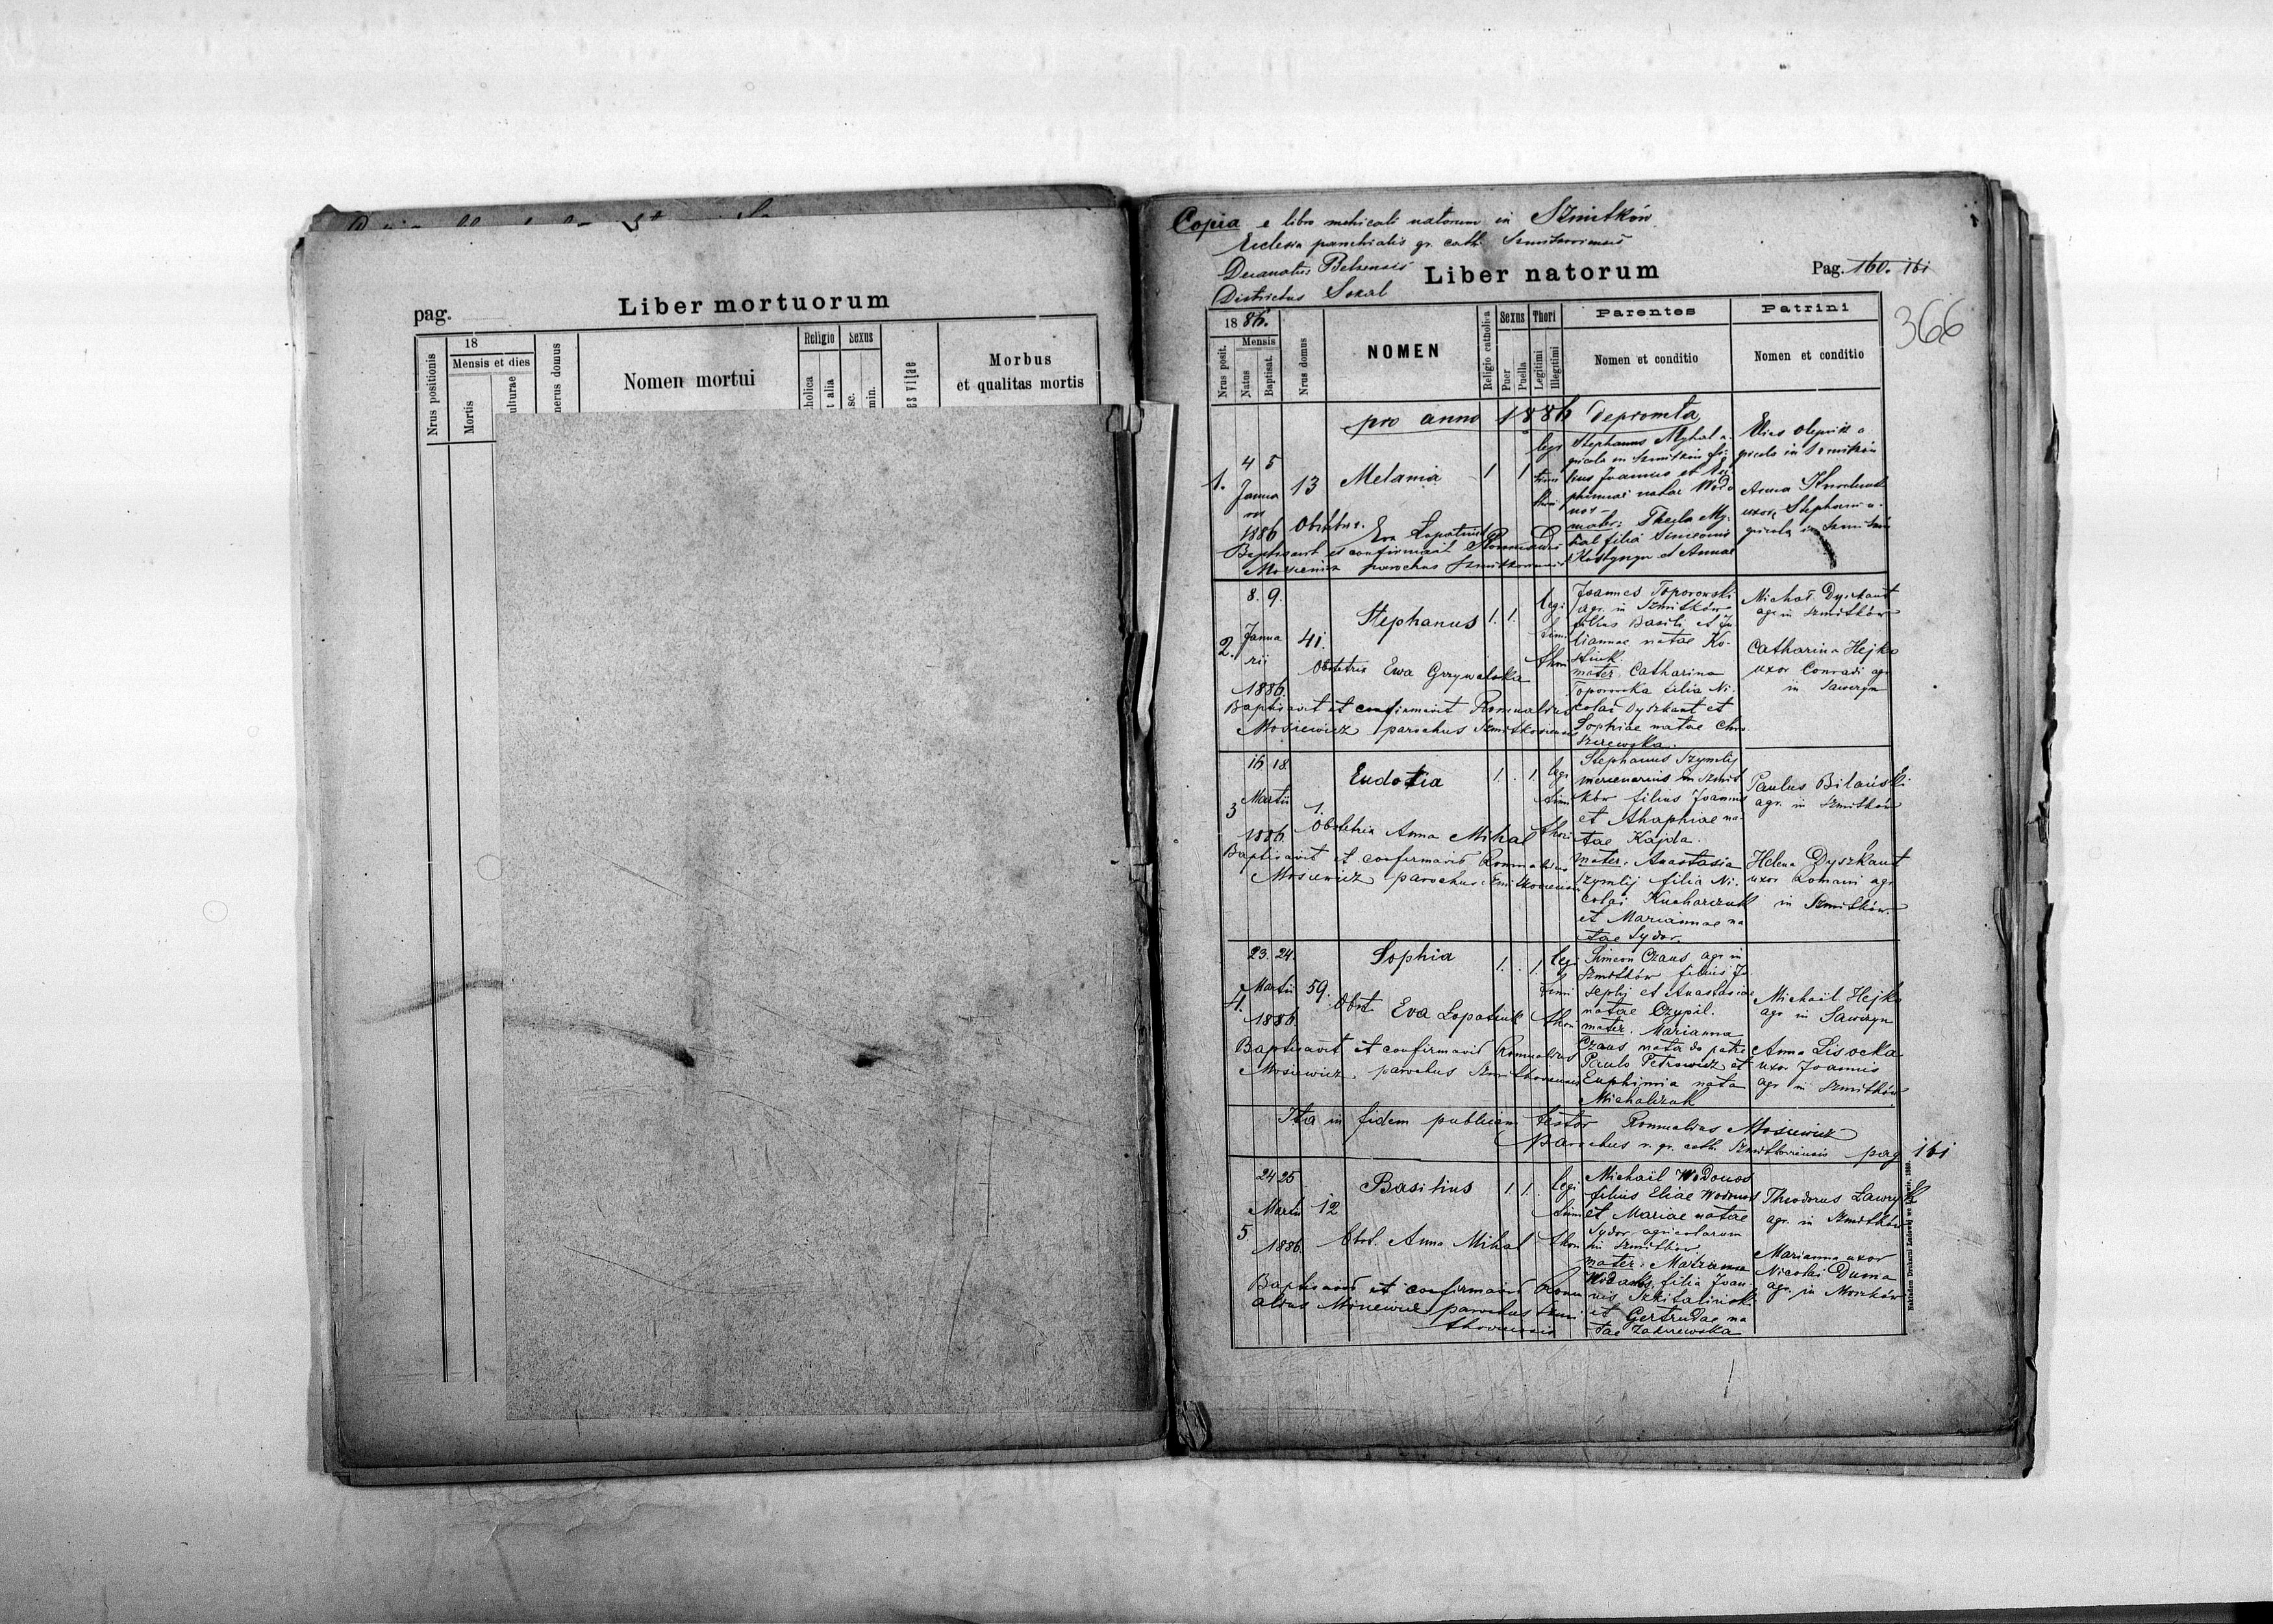 pag.
Liber mortuorum
Nrus positionis
18
Mensis et dies
Mortis
ulturae
nerus domus
Nomen mortui
Religio
holica
t alia
Sexus
sc.
min.
es vitae
Morbus
et qualitas mortis
Copia e libro metricali natorum in Szmitków
Eclesia parochialis gr. cath. Szmitkoviensis
Decanatus Belzensis
Districtus Sokal
Liber natorum
Pag. 160. 161
366
1886.
Nrus posit.
Mensis
Natus
Baptisat.
Nrus domus
NOMEN
Religio catholica
Sexus
Puer
Puella
Thori
Legitimi
Illegtimi
Parentes
Nomen et conditio
Patrini
Nomen et conditio
pro anno 1886 depromta
1.
4 5
Janua
rii
1886
13
Melania
1
1
legi
timi
thori
Obstetrix Eva Lopatiuk
Baptisavit et confirmavit Romualdus
Mosiewicz parochus Szmitkoviensis
Stephanus Myhal a
gricola in Szmitków fi
lius Joannis et
natae Wodo
nos
mater: Thecla My
hal filia Simeonis
Kostyszyn et Annae
Elias Olejnik a
gricola in Szmitków
Anna
uxor Stephani a
gricola in Szmitków
2.
8. 9.
Janua
rii
1886.
41.
Stephanus
1. 1.
legi
timi
thori
Obstetrix Ewa Grzywalska
Baptisavit et confirmavit Romualdus
Mosiewicz parochus Szmitkoviensis
Joannes Toporowski
agr. in Szmitków
filius Basilii et Ju
liannae natae Ko-
stiuk.
mater. Catharina
Toporowska filia Ni-
colai Dyszkant et
Sophiae natae Chru
szczewska.
Michał Dyszkant
agr. in Szmitków
Catharina Hejko
uxor Conradi agr
in Sawczyn
3
16 18.
Martii
1886.
1.
Eudoxia
1. . 1
legi
timi
thori
Obstetrix Anna Mihal
Baptisavit et confirmavit Romualdus
Mosiewicz parochus Szmitkoviensis
Stephanus Szymlij
mercenarius in Szmit
ków filius Joannis
et Ahaphiae na-
tae Kajda.
mater. Anastasia
Szymlij filia Ni-
colai Kucharczuk
et Mariannae na
tae Sydor.
Paulus Bilański
agr. in Szmitków
Helena Dyszkant
uxor Romani agr
in Szmitków.
4.
23. 24.
Martii
1886
59.
Sophia
1. . 1
legi
timi
thori
Obst. Eva Lopatiuk
Baptisavit et confirmavit Romualdus
Mosiewicz parochus Szmitkoviensis
Simeon Czaus agr in
Szmitków filius Jo
sephi et Anastasiae
natae Czypil.
mater. Marianna
Czaus nata de patre
Paulo Petrowicz et
Euphimia nata
Michalczuk
Michaił Hejko
agr in Sawczyn
Anna Lisocka
uxor Joannis
agr in Szmitków
Ita in fidem publicam testor Romualdus Mosiewicz
Parochus r. gr. cath. Szmitkoviensis pag 161
5
24 25
Martii
1886.
12
Basilius
1 1.
legi
timi
thori
Obst. Anna Mihal
Baptisavit et confirmavit Romu
aldus Mosiewicz parochus Szmi
tkoviensis
Michaił Wodonos
filius Eliae Wodonos
et Mariae natae
Sydor agricolarum
in Szmitków
mater. Marianna
Wodonos, filia Joan-
nis
et Gertrudae na
tae Zakrzewska
Theodorus Ławryk
agr. in Szmitków
Marianna uxor
Nicolai Duma
agr. in Moszków
Nakładem Drukarni Ludowej we Lwowie. 1889.